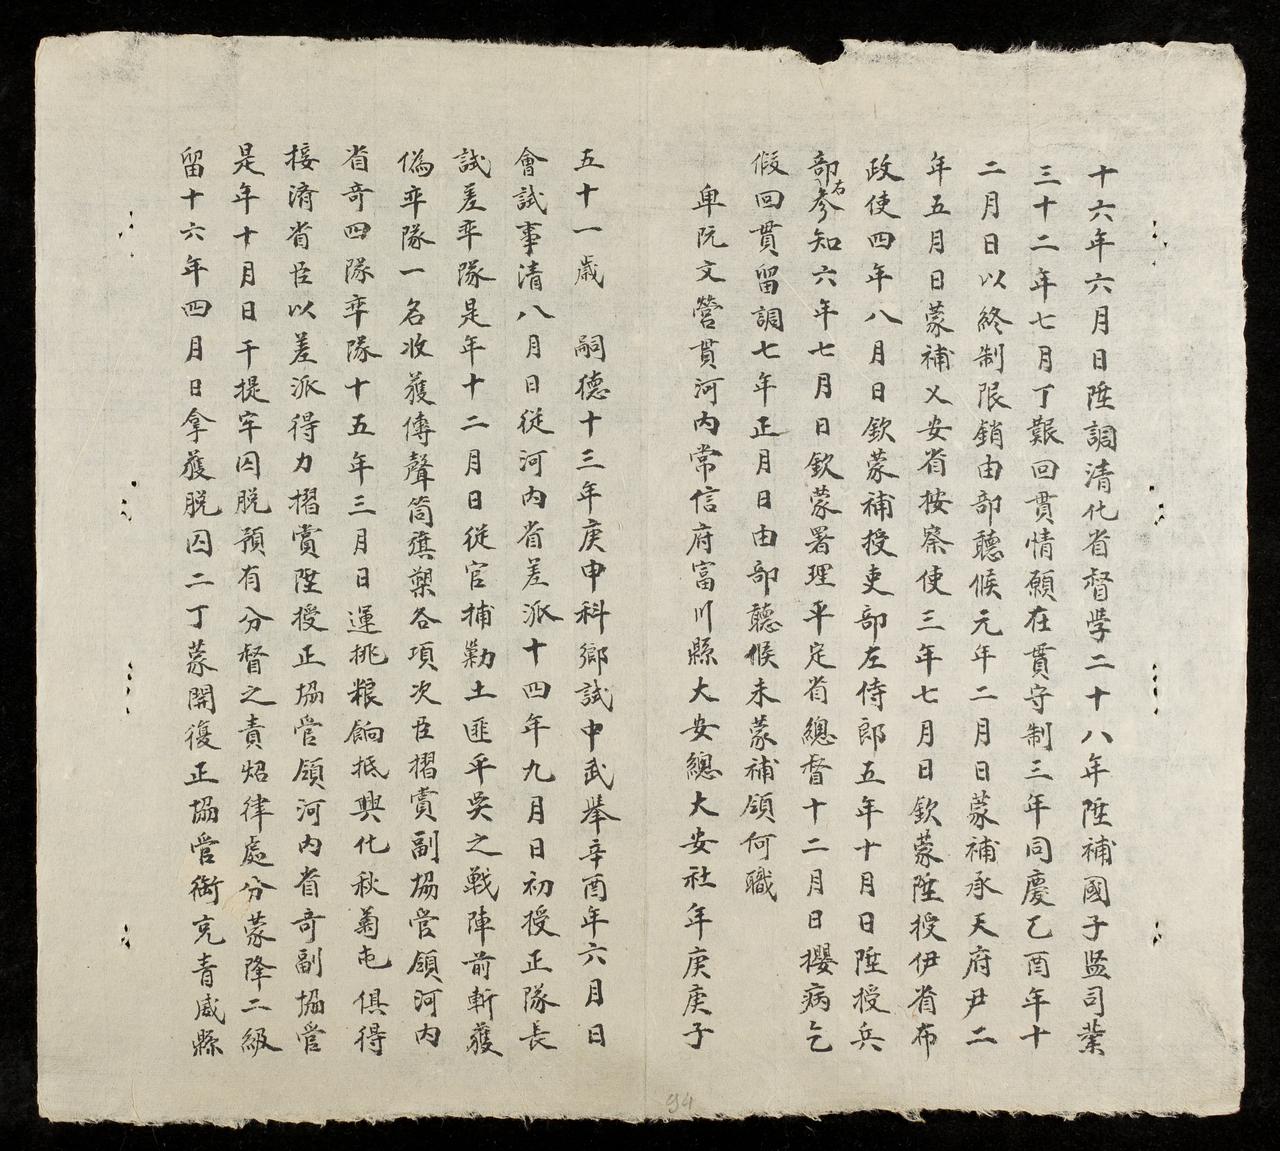 十六年六月日陞調清化省督學二十八年陞補國子監司業
三十二年七月丁艱回貫情願在貫守制三年同慶乙酉年十
二月日以終制限銷由部聽候元年二月日蒙補承天府尹二
年五月日蒙補乂安省按察使三年七月日欽蒙陞授伊省布
政使四年八月日欽蒙補授吏部左侍郎五年十月日陞授兵
部右參知六年七月日欽蒙署理平定省總督十二月日攖病乞
假回貫留調七年正月日由部聽候未蒙補領何職
卑阮文營貫河內常信府富川縣大安總大安社年庚庚子
五十一歲 嗣德十三年庚申科鄉試中武舉辛酉年六月日
會試事清八月日從河內省差派十四年九月日初授正隊長
試差率隊是年十二月日從官捕勦土匪平吳之戰陣前斬獲
偽率隊一名收獲傳聲筒旗槊各項次臣摺賞副協管領河內
省奇四隊率隊十五年三月日運挑粮餉抵興化秋菊屯俱得
接濟省臣以差派得力摺賞陞授正協管領河內省奇副協管
是年十月日干提牢囚脫預有分督之責炤律處分蒙降二級
留十六年四月日拿獲脫囚二丁蒙開復正協管銜充青威縣
94